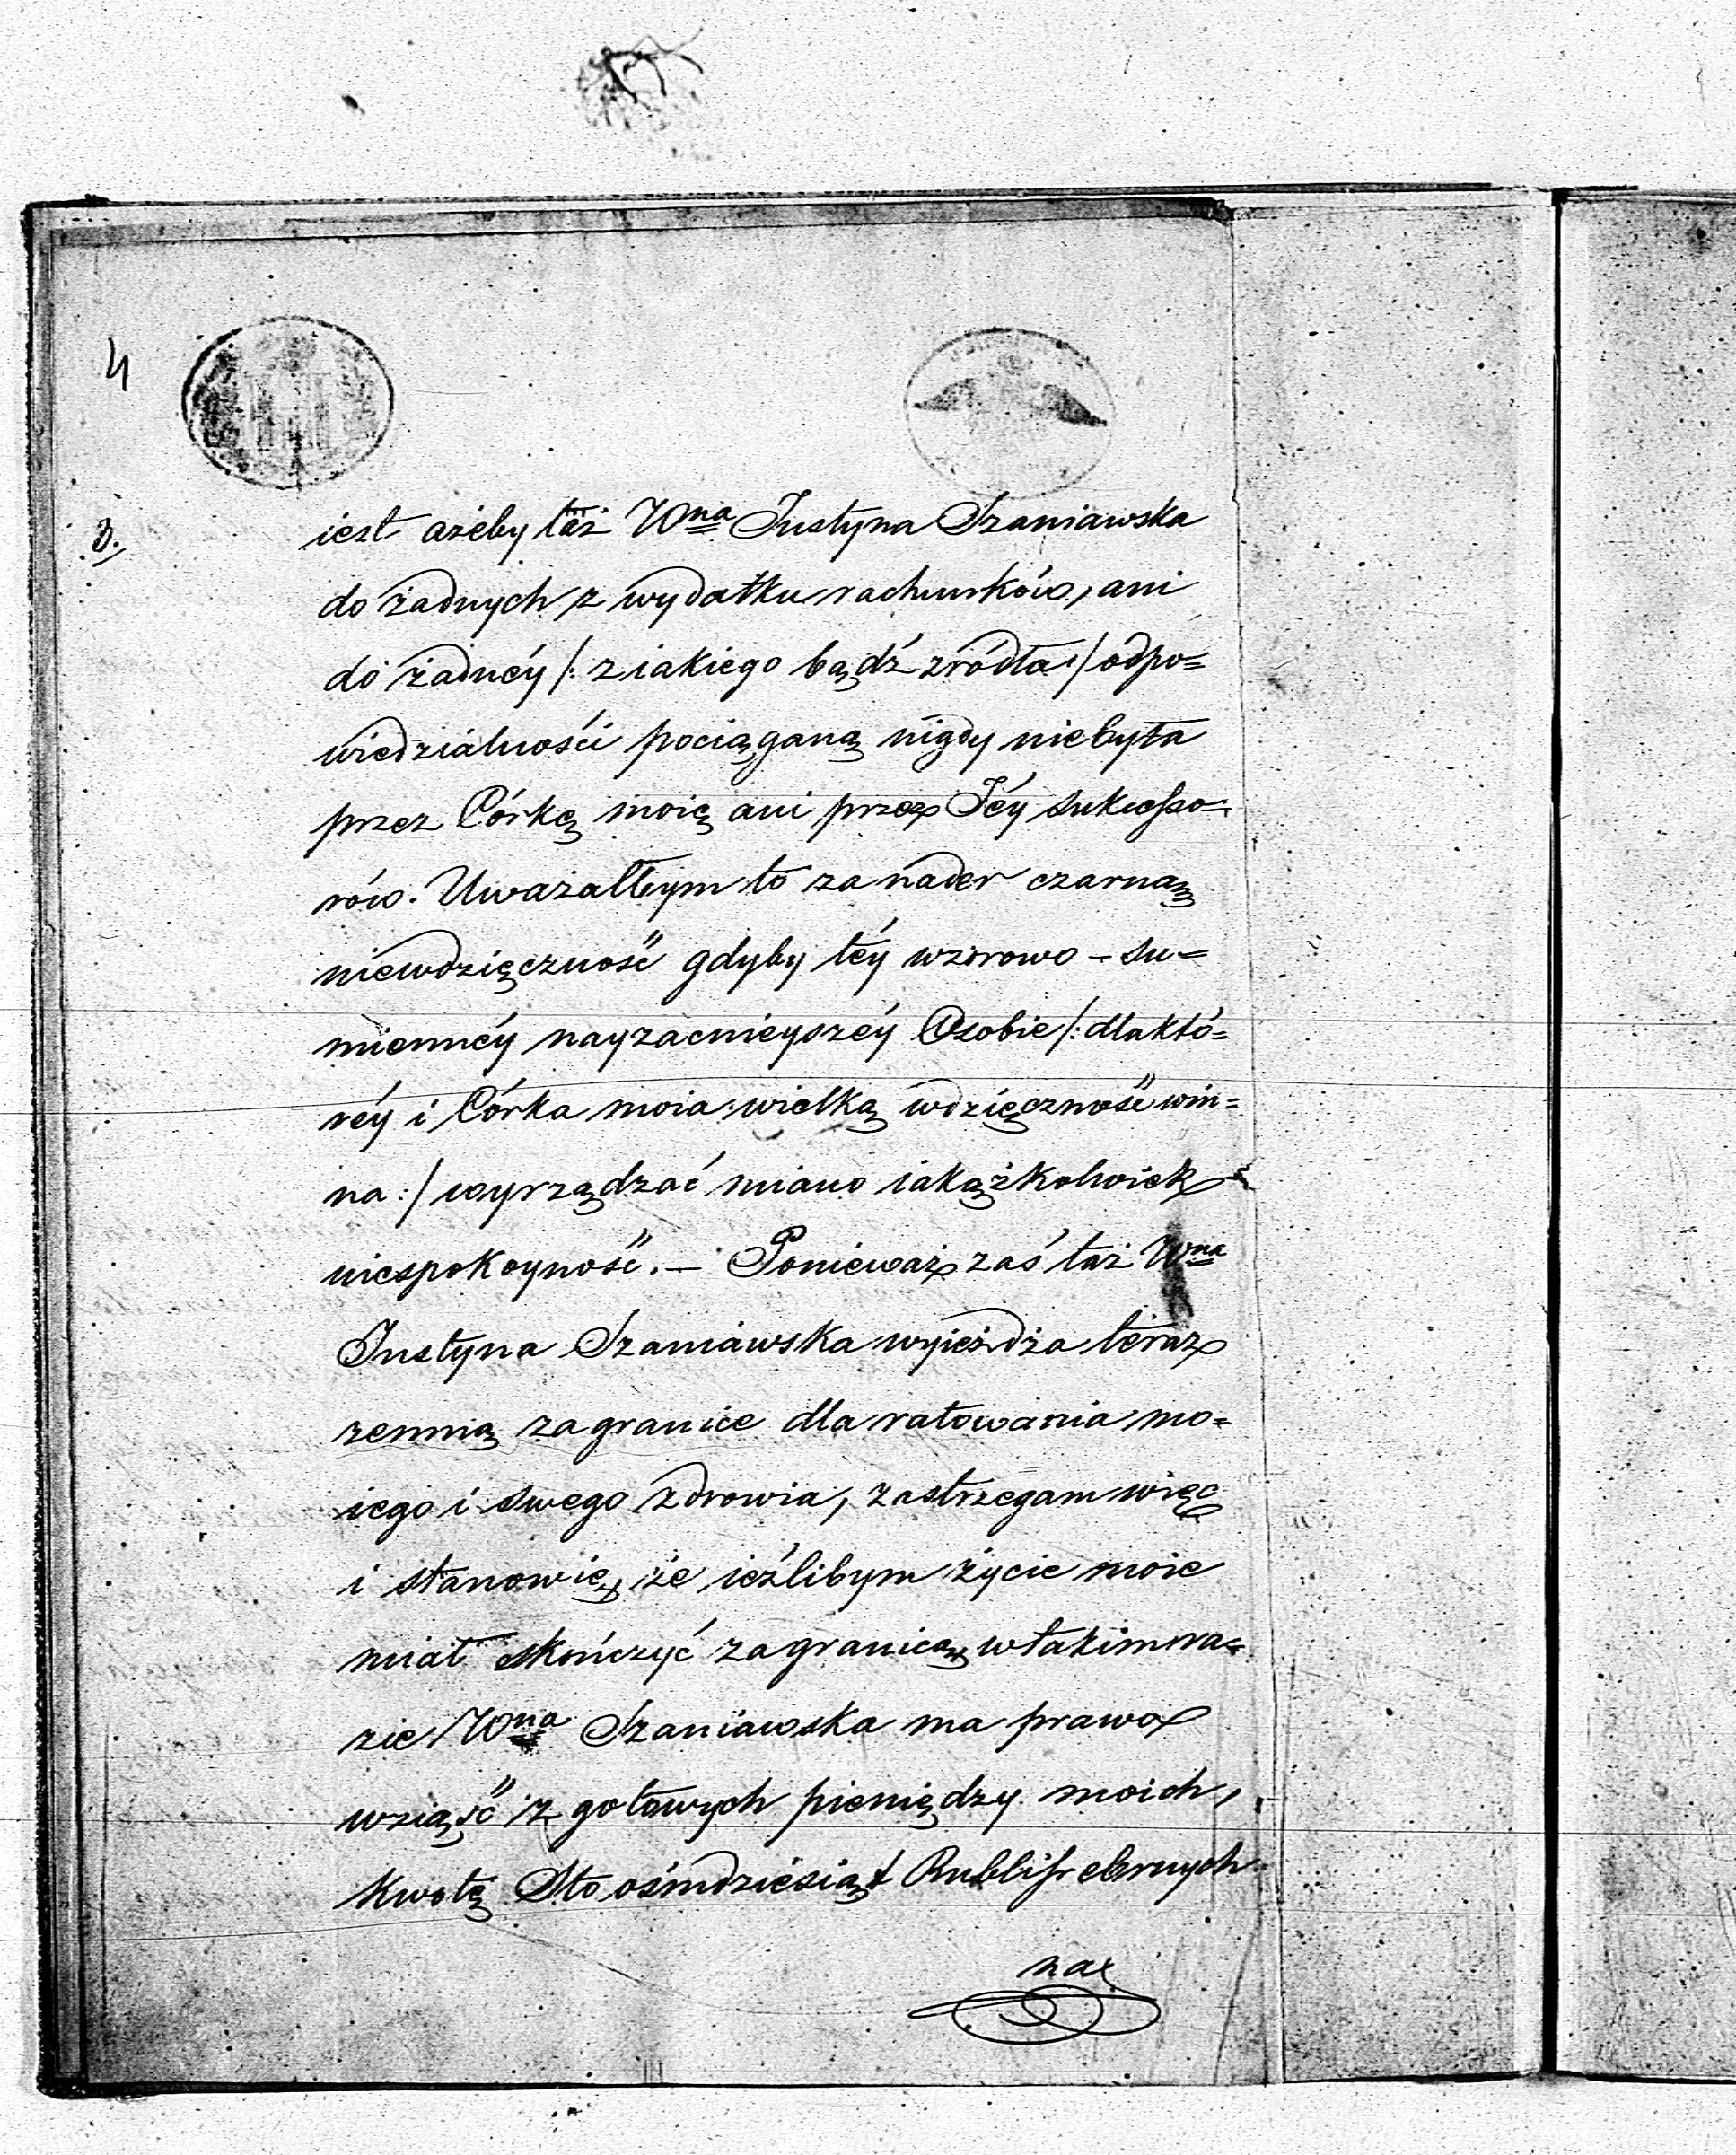 4
3.
iest ażeby taż Wna Justyna Szaniawska
do żadnych z wydatku rachunków, ani
do żadnéy /: z iakiego bądź zródła :/ odpo=
wiedzialności pociąganą nigdy niebyła
przez Córkę moię ani przez Jéy sukcesso=
rów. Uważałbym to za nader czarną
niewdzięczność gdyby téy wzorowo - su=
miennéy nayzacnieyszéy Osobie /: dla któ=
réy i Córka moia wielką wdzięczność win=
na :/ wyrządzać miano iakążkolwiek
niespokoyność. — Ponieważ zaś taż Wna
Justyna Szaniawska wyieżdża teraz
zemną zagranice dla ratowania mo=
iego i swego zdrowia, zastrzegam więc
i stanowię, że ieżlibym życie moie
miał skończyć zagranicą, w takim ra=
zie Wna Szaniawska ma prawo
wziąść z gotowych pieniędzy moich,
kwotę Sto ośmdziesiąt Rubli srebrnych
na